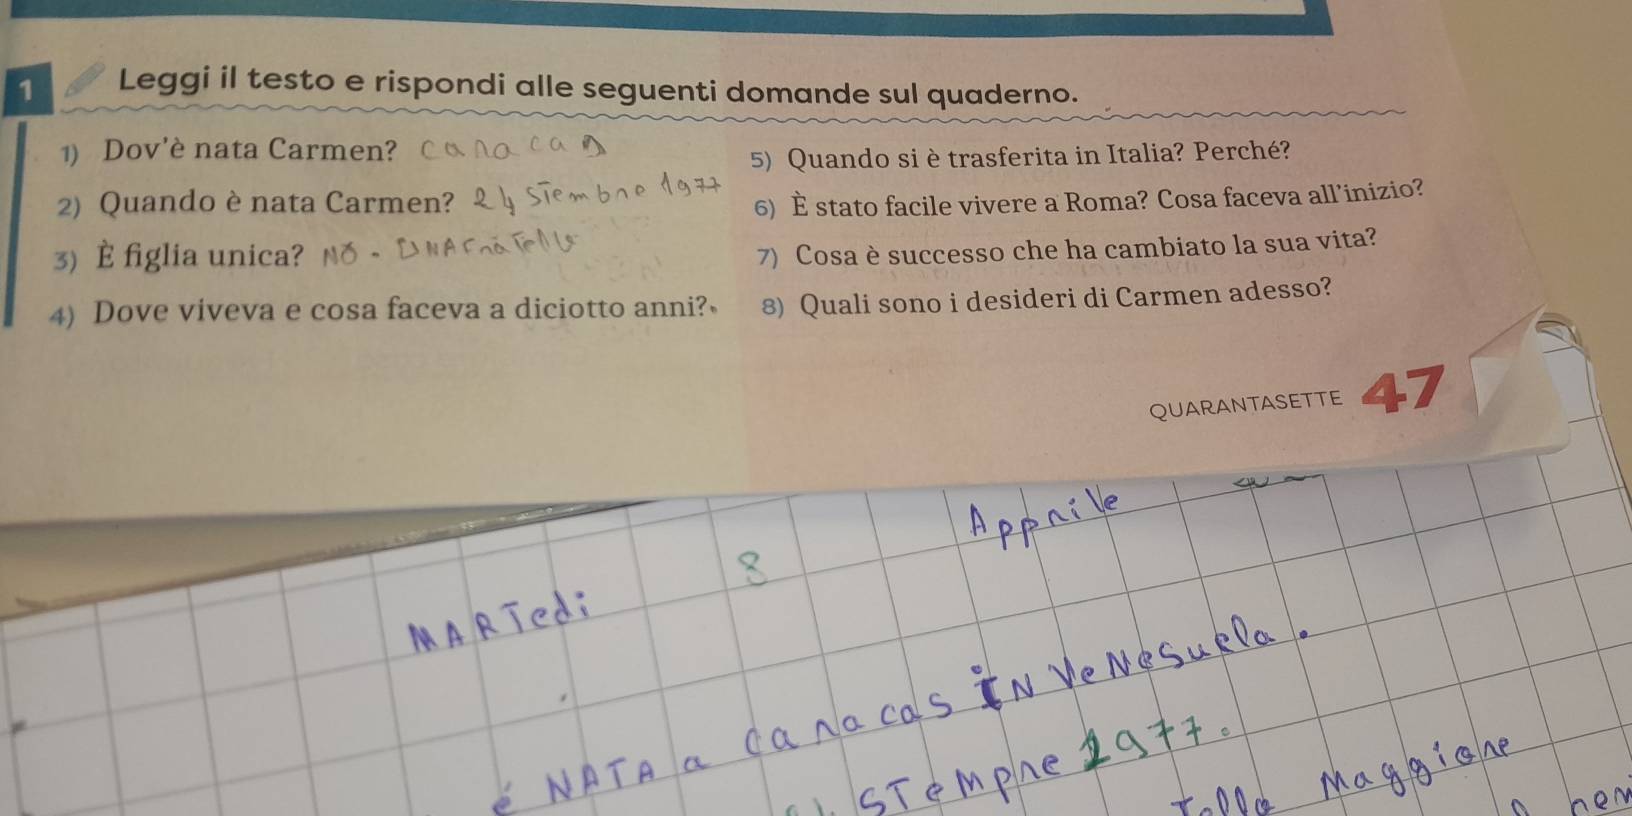 1 Leggi il testo e rispondi alle seguenti domande sul quaderno.
1) Dov'è nata Carmen? canacas
2) Quando è nata Carmen? 24 sTembne 1977
3) È figlia unica? NO -
4) Dove viveva e cosa faceva a diciotto anni?
5) Quando si è trasferita in Italia? Perché?
6) È stato facile vivere a Roma? Cosa faceva all'inizio?
7) Cosa è successo che ha cambiato la sua vita?
8) Quali sono i desideri di Carmen adesso?
QUARANTASETTE 47
MARTedi 8 Appnile
é NATA a canacas iN VeNesuela.
STempne 1977.
Maggione